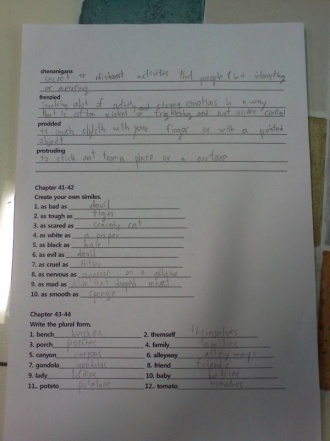 shenanigans
secret or dishonest activities that people find interesting
or amusing
frenzied
involving alot of activity and strong emotions in a way
that is often violent or frightening and not under control
prodded
to push sb/sth with your finger or with a pointed
object
protruding
to stick out from a place or a surface
Chapter 41-42
Create your own similes.
1. as bad as devil
2. as tough as tiger
3. as scared as scaredy cat
4. as white as a paper
5. as black as hair
6. as evil as devil
7. as cruel as
8. as nervous as on a
9. as mad as
10. as smooth as sponge
Chapter 43-44
Write the plural form.
1. bench benches 2. themself themselves
3. porch porches 4. family families
5. canyon canyons 6. alleyway alleyways
7. gondola gondolas 8. friend friends
9. lady ladies 10. baby babies
11. potato potatoes 12. tomato tomatoes